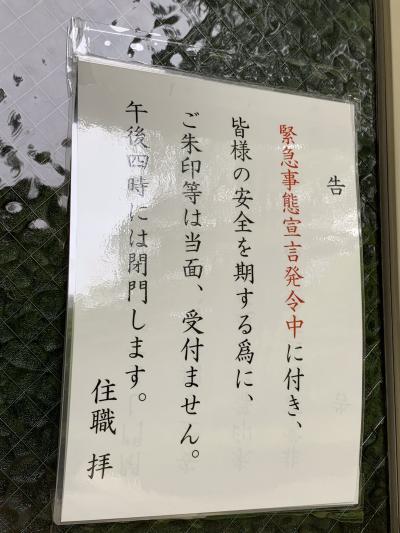 告
緊急事態宣言発令中に付き、
皆様の安全を期する爲に、
ご朱印等は当面、受付ません。
午後四時には閉門します。
住職 拝